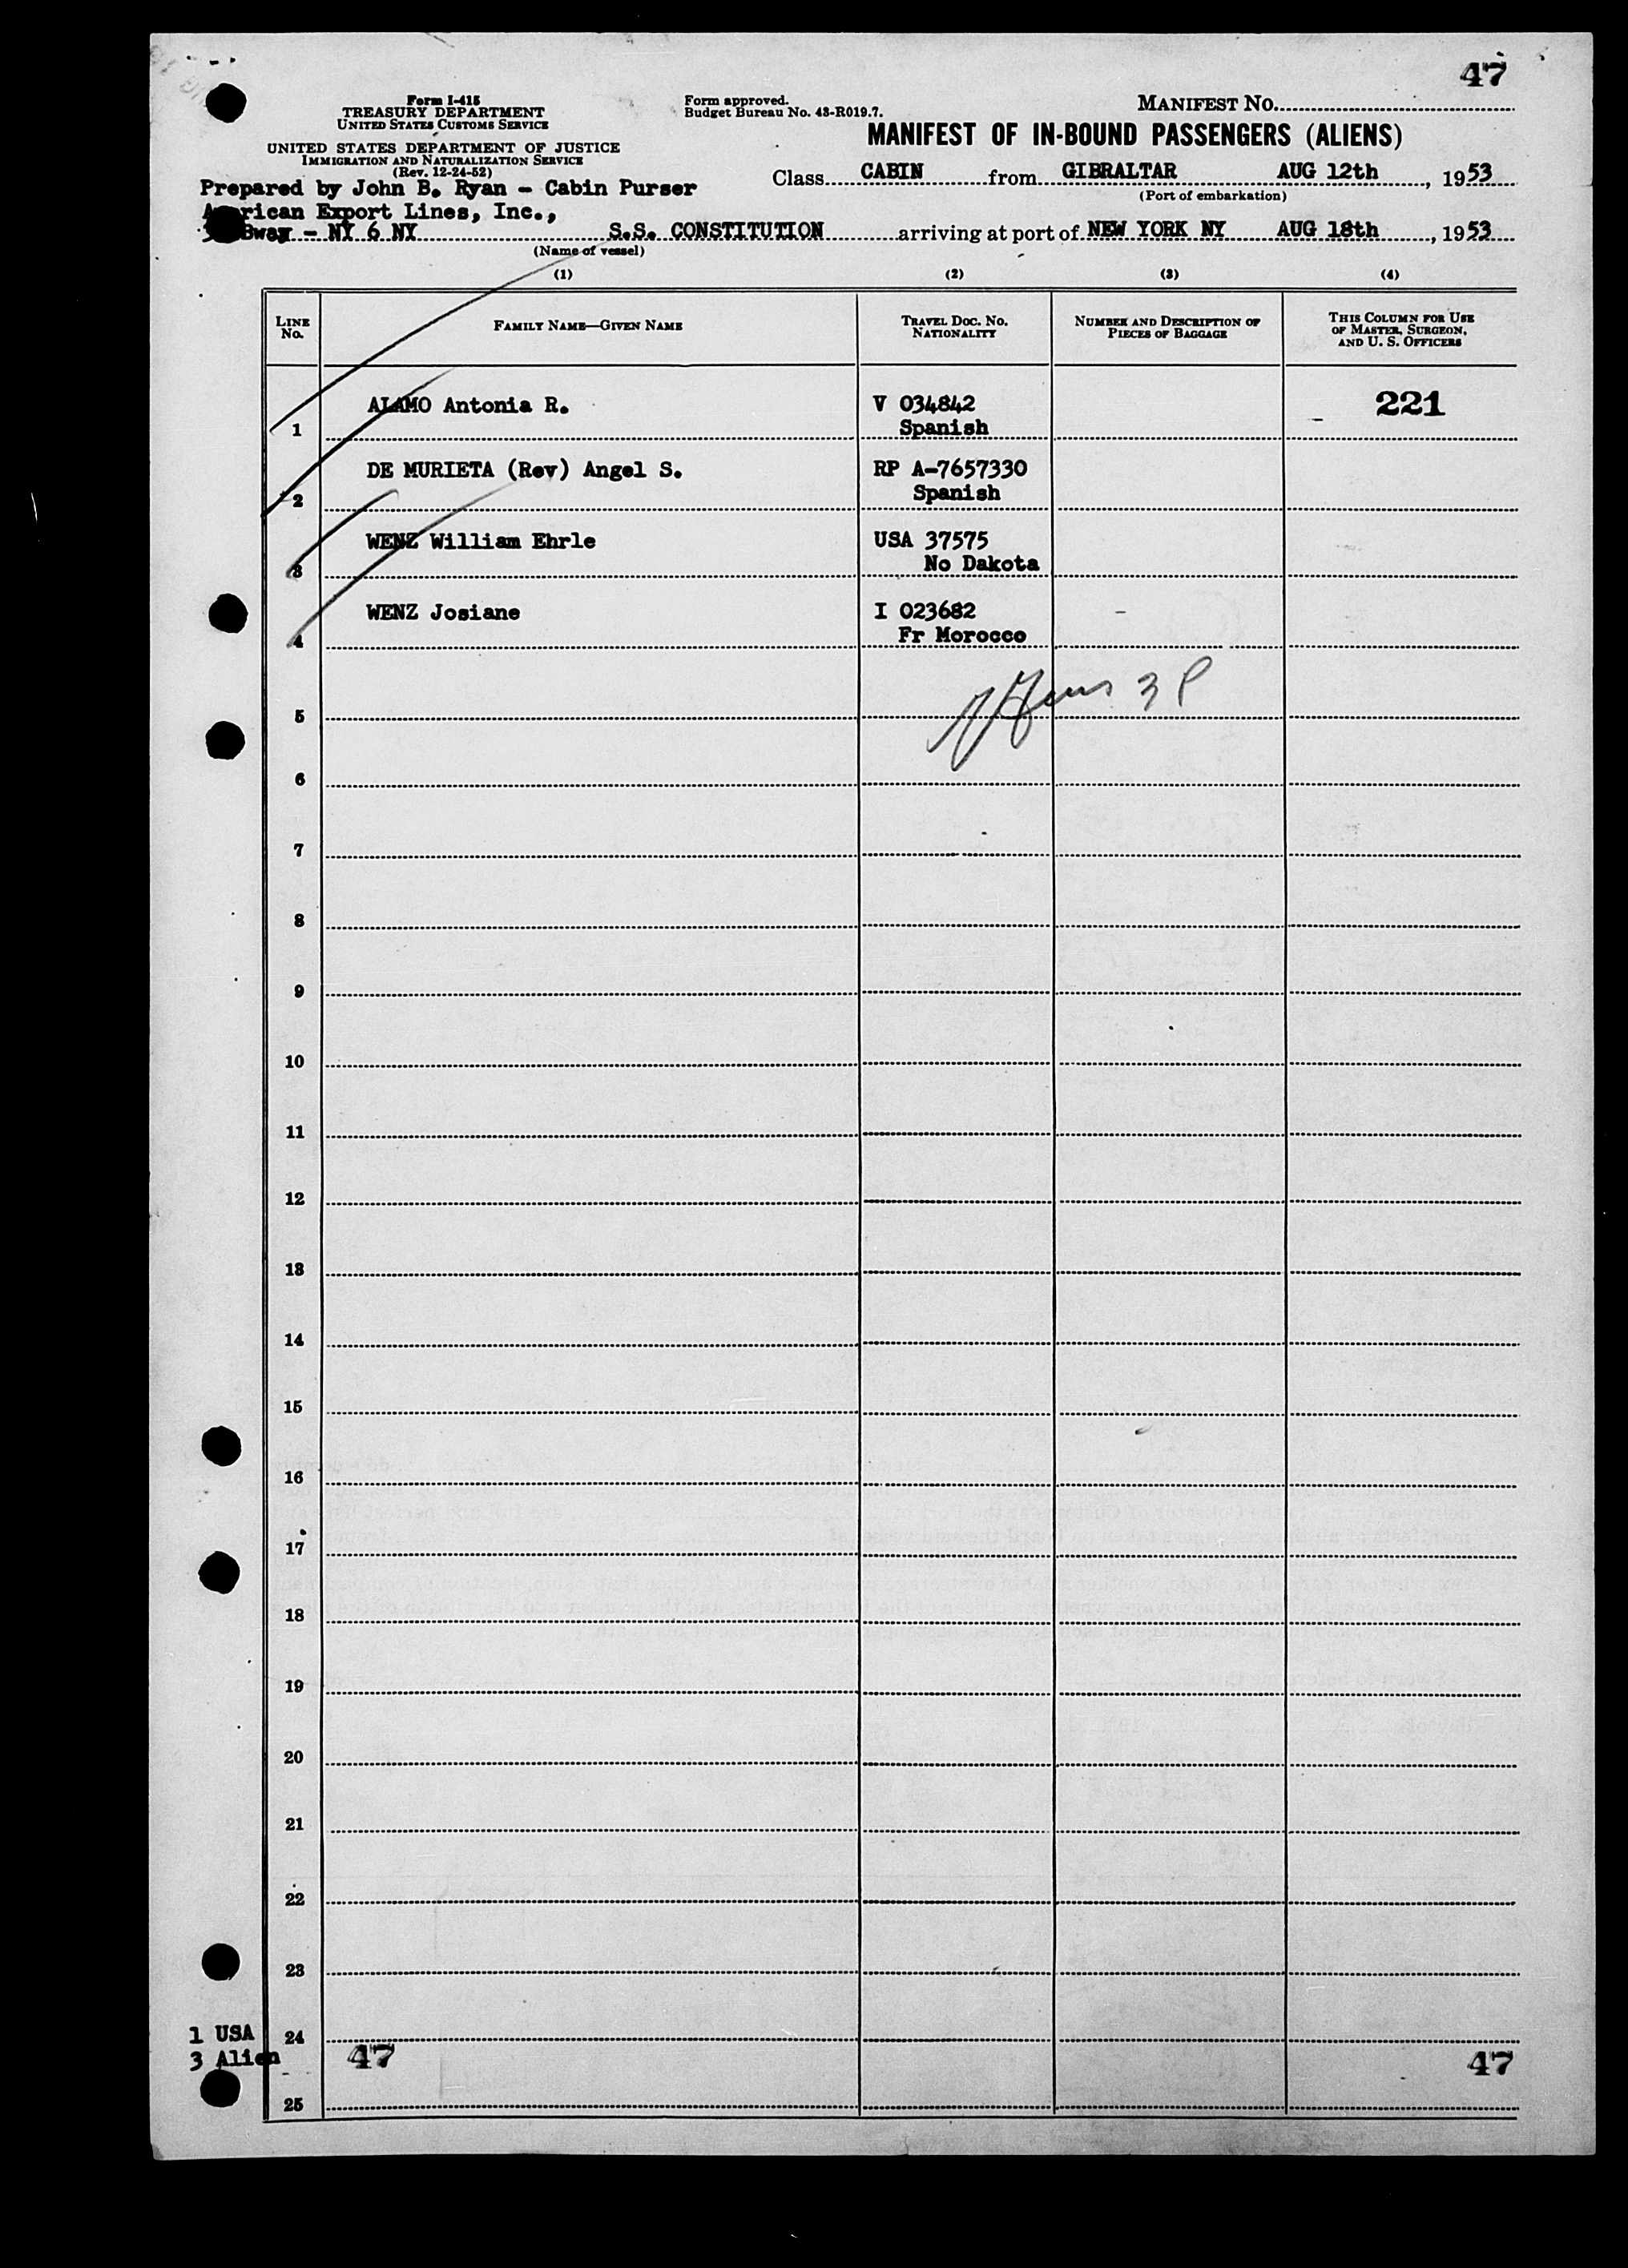 47
Form I-415
TREASURY DEPARTMENT
UNITED STATES CUSTOMS SERVICE
UNITED STATES DEPARTMENT OF JUSTICE
IMMIGRATION AND NATURALIZATION SERVICE
(Rev. 12-24-52)
Form approved.
Budget Bureau No. 43-R019.7.
MANIFEST NO.
MANIFEST OF IN-BOUND PASSENGERS (ALIENS)
Class CABIN from GIBRALTAR AUG 12th, 1953
(Port of embarkation)
Prepared by John B. Ryan - Cabin Purser
American Export Lines, Inc.,
Bway - NY 6 NY S.S. CONSTITUTION arriving at port of NEW YORK NY AUG 18th, 1953
(Name of vessel)
(1) (2) (3) (4)
LINE No. FAMILY NAME—GIVEN NAME TRAVEL DOC. NO. NATIONALITY NUMBER AND DESCRIPTION OF PIECES OF BAGGAGE THIS COLUMN FOR USE OF MASTER, SURGEON, AND U. S. OFFICERS
1 ALAMO Antonia R. V 034842 221
Spanish
2 DE MURIETA (Rev) Angel S. RP A-7657330
Spanish
3 WENZ William Ehrle USA 37575
No Dakota
4 WENZ Josiane I 023682
Fr Morocco
3 P
5
6
7
8
9
10
11
12
13
14
15
16
17
18
19
20
21
22
23
1 USA 24
3 Alien 47 47
25